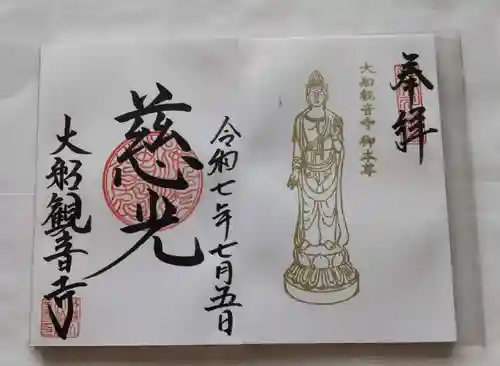 奉拝
大船観音寺 御本尊
令和七年七月五日
慈光
大船観音寺